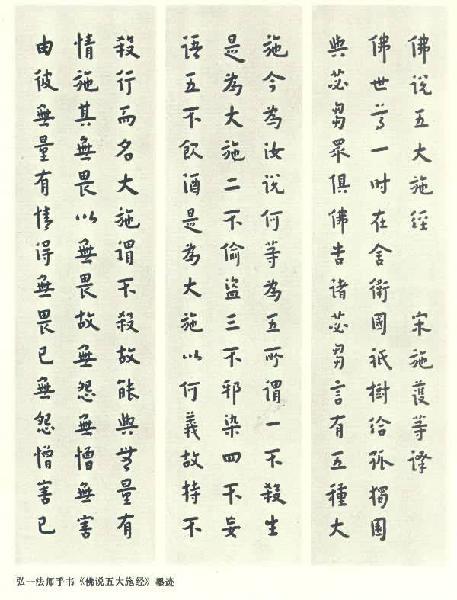 佛说五大施经 宋施護等译
佛世尊一时在舍衛國祇樹给孤獨園
與苾芻眾俱佛告诸苾芻言有五種大
施今為汝说何等為五所謂一不殺生
是為大施二不偷盜三不邪染四不妄
语五不飲酒是為大施以何義故持不
殺行而名大施謂不殺故能與無量有
情施其無畏以無畏故無怨無憎無害
由彼無量有情得無畏已無怨憎害已
弘一法师手书《佛说五大施经》墨迹